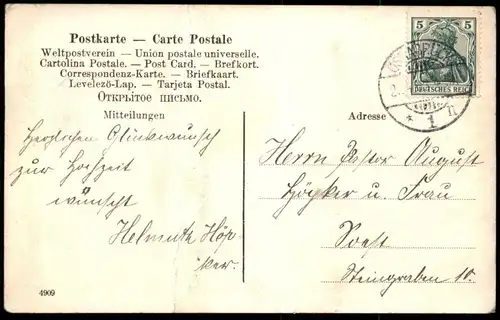 Postkarte — Carte Postale
Weltpostverein — Union postale universelle.
Cartolina Postale. — Post Card. — Brefkort.
Correspondenz-Karte. — Briefkaart.
Levelező-Lap. — Tarjeta Postal.
Открытое письмо.
Mitteilungen
Herzlichen Glückwunsch
zur Hochzeit
wünscht
Helmuth Höp-
ker.
4909
5 5
DEUTSCHES REICH
* 1 n
Adresse
Herrn Pastor August
Höpker u. Frau
Soest
Steingraben 10.